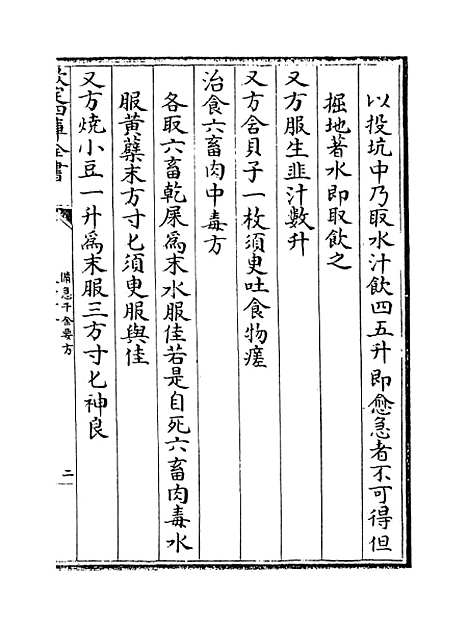 以投坑中乃取水汁飲四五升即愈急者不可得但
掘地著水即取飲之
又方服生韭汁數升
又方含貝子一枚須臾吐食物瘥
治食六畜肉中毒方
各取六畜乾屎為末水服佳若是自死六畜肉毒水
服黄蘗末方寸匕須臾服與佳
又方燒小豆一升為末服三方寸匕神良
欽定四庫全書
備急千金要方
二